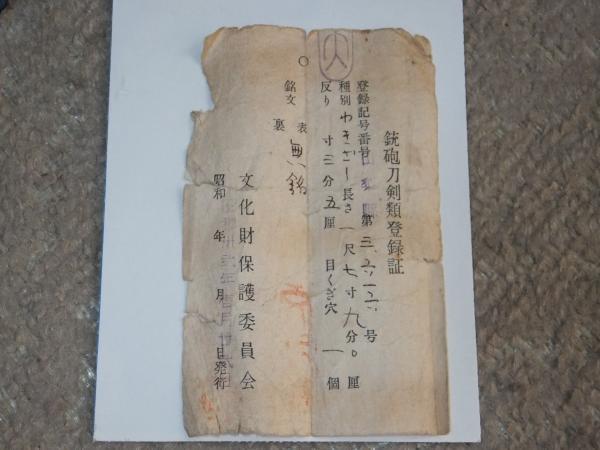 銃砲刀剣類登録証
登録記号番号 第 三六二六 号
種別 わきざし 長さ 一尺七寸九分0厘
反り 寸三分五厘 目くぎ穴 一個
銘文 表 無銘
裏
文化財保護委員会
昭和 年 月 日発行